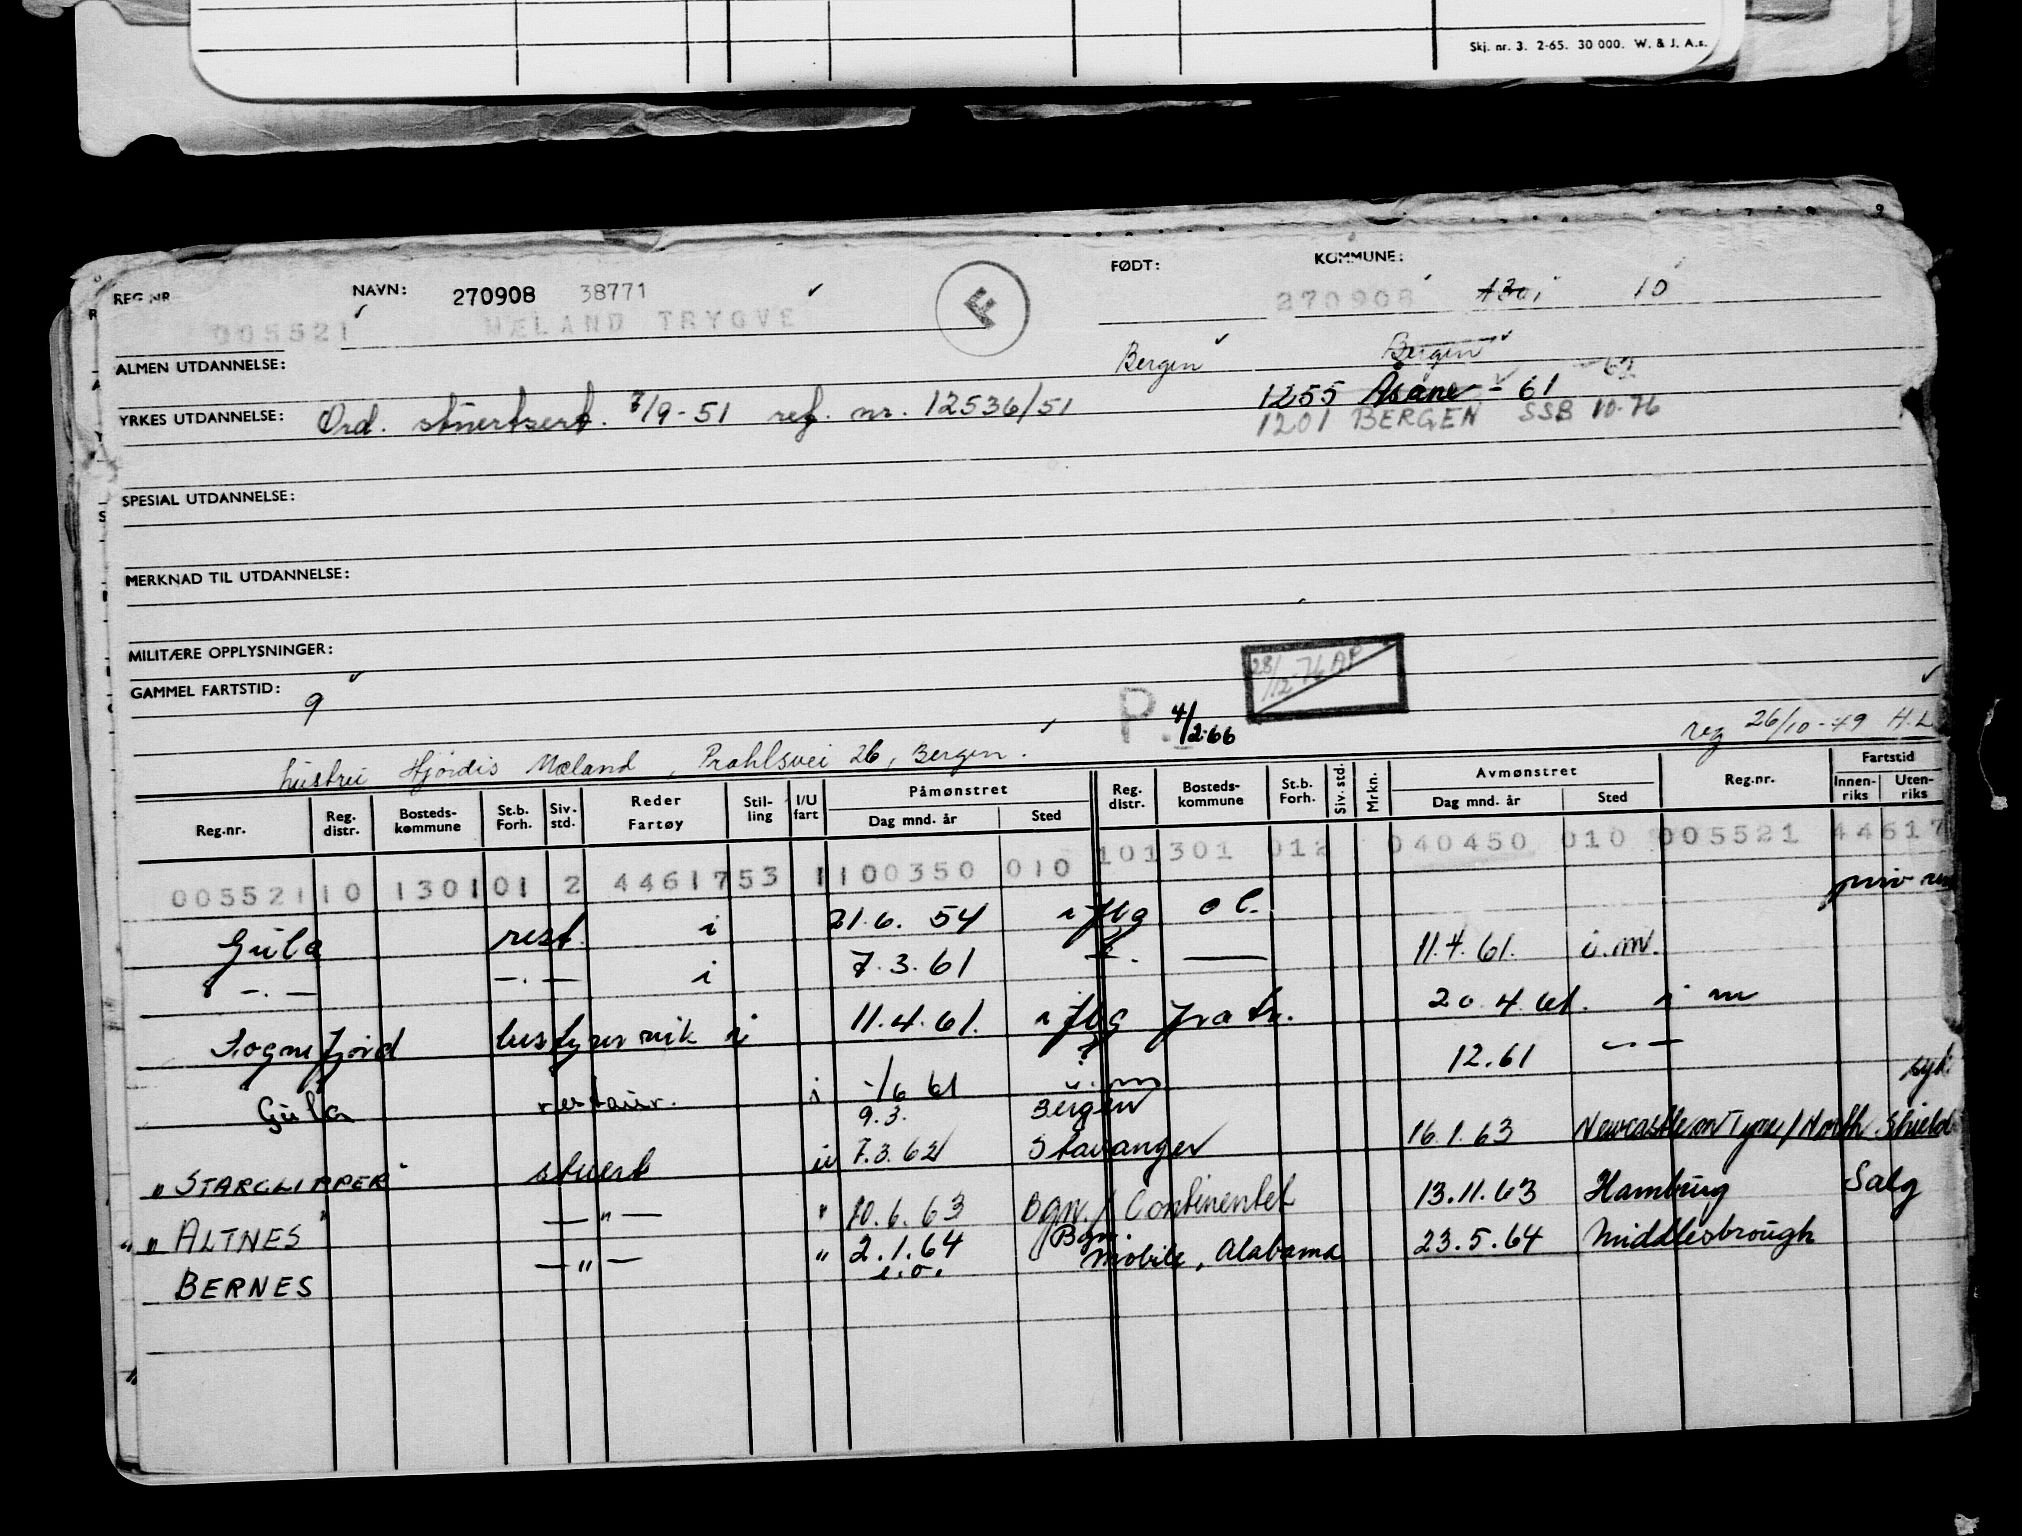 Skj. nr. 3. 2-65. 30 000. W. & J. A.s.
REG NR NAVN: 270908 38771 FØDT: KOMMUNE:
005521 MÆLAND TRYGVE F 270908 1301 10
ALMEN UTDANNELSE: Bergen Bergen
YRKES UTDANNELSE: Ord. stuertsert. 7/9-51 ref. nr. 12536/51 1255 Åsane - 61 62
1201 BERGEN SSB 10-76
SPESIAL UTDANNELSE:
MERKNAD TIL UTDANNELSE:
MILITÆRE OPPLYSNINGER:
28/12-76 AP
GAMMEL FARTSTID: 9
P. 4/2-66
reg 26/10-49 H.L
hustru Hjørdis Mæland, Prahlsvei 26, Bergen.
Reg.nr. Reg. distr. Bosteds-kommune St.b. Forh. Siv. std. Reder Fartøy Stil-ling I/U fart Påmønstret Dag mnd. år Sted Reg. distr. Bosteds-kommune St.b. Forh. Siv. std. Mrkn. Avmønstret Dag mnd. år Sted Reg.nr. Fartstid Innen-riks Uten-riks
005521 10 1301 01 2 4461753 1 100350 010 101301 012 040450 010 005521 44617
Gula rest. i 21.6.54 i fbg ol.
-.- -.- i 7.3.61 11.4.61. i.m.
Sognefjord i 11.4.61. i fbg 20.4.61. i m
Gula restaur. i -/6 61 u.m 12.61
9.3. Bergen
"STARCLIPPER" stuert u 7.3.62 Stavanger 16.1.63 Newcastle on Tyne/North Shield syk
" ALTNES " -"- " 10.6.63 Bgn./Continentet 13.11.63 Hamburg Salg
BERNES -"- " 2.1.64 Bgn/Mobile, Alabama 23.5.64 Middlesbrough
i.o.